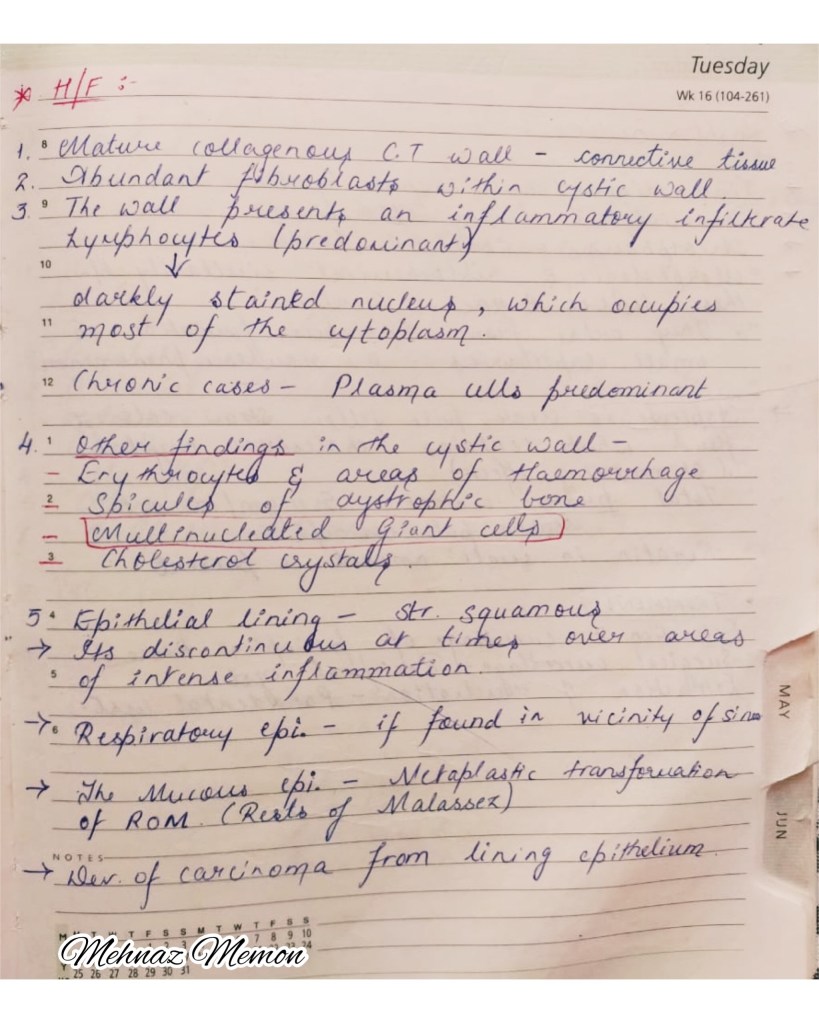 Tuesday
Wk 16 (104-261)
* H/F :-
1. 8 Mature collagenous C.T wall - connective tissue
2. Abundant fibroblasts within cystic wall.
3. 9 The wall presents an inflammatory infiltrate
Lymphocytes (predominant)
10 ↓
darkly stained nucleus, which occupies
11 most of the cytoplasm.
12 Chronic cases - Plasma cells predominant
4. 1 Other findings in the cystic wall -
- Erythrocytes & areas of Haemorrhage
- 2 Spicules of dystrophic bone
- Multinucleated Giant cells
- 3 Cholesterol crystals.
5 4 Epithelial lining - str. squamous
→ Its discontinuous at times over areas
5 of intense inflammation.
→ 6 Respiratory epi. - if found in vicinity of sinus
→ The Mucous epi. - Metaplastic transformation
of ROM. (Rests of Malassez)
NOTES
→ Dev. of carcinoma from lining epithelium.
MAY
JUN
T F S S M T W T F S S
7 8 9 10
25 26 27 28 29 30 31
Mehnaz Memon